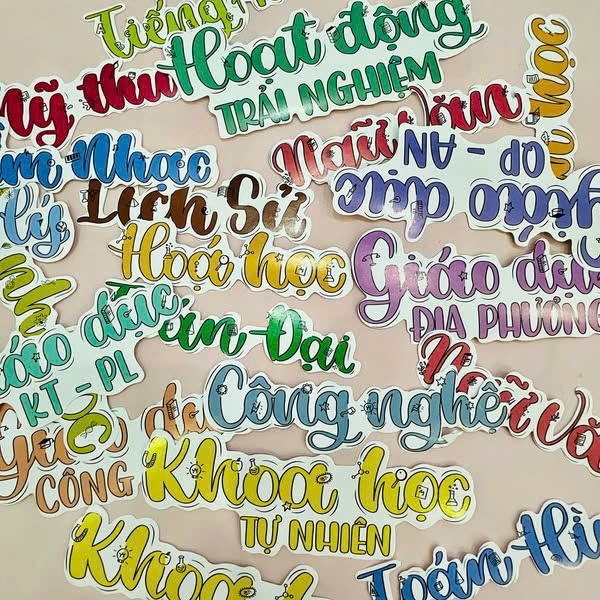 Tiếng
Hoạt động
TRẢI NGHIỆM
Mỹ thu
Ngữ Văn
học
Âm Nhạc
QP - AN
Giáo dục
lý
Lịch Sử
Hoá học
Giáo dục
ĐỊA PHƯƠNG
nh
Giáo dục
KT - PL
Toán-Đại
Ngữ Vă
Công nghệ
Giáo dục
CÔNG
Khoa học
TỰ NHIÊN
Khoa h
Toán Hìn